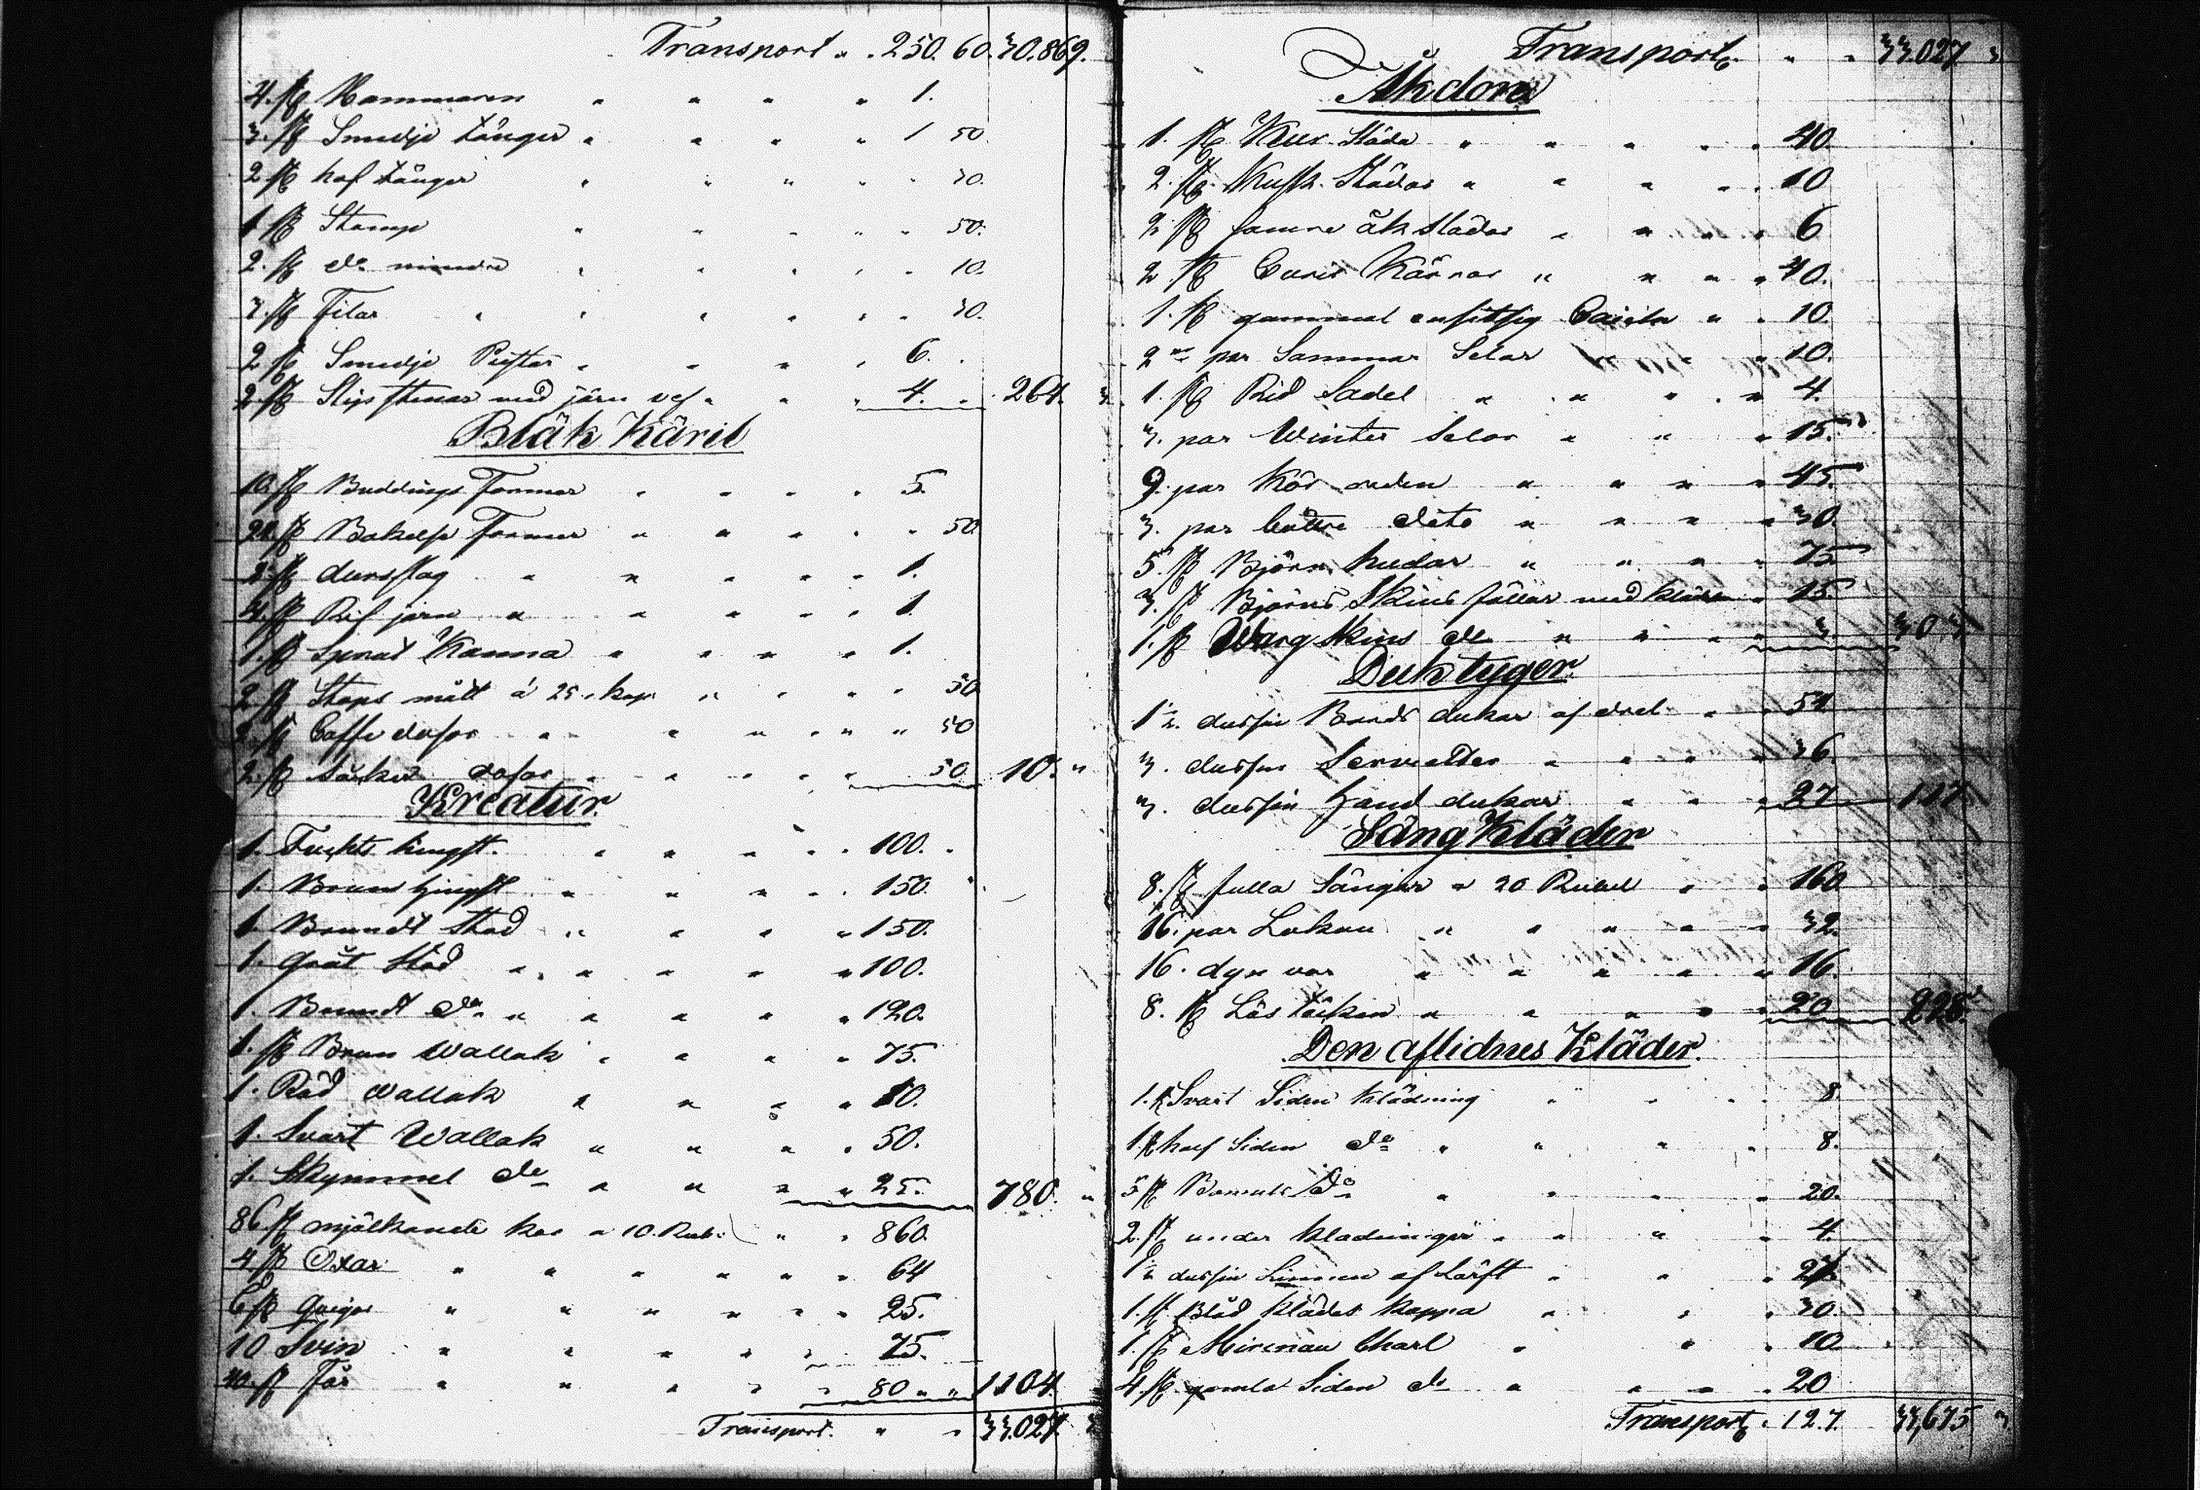 Transport " . 250. 60. 30.869.
4. st Hammaren " " " " 1.
3. st Smedje tänger " " " " 1 50
2. st hof tänger " " " " 30.
1 st Stamp " " " " 50.
2. st do mindre " " " " 10.
3. st Filar " " " " 30.
2 st Smedje Pustar " " " 6.
2. st Slipstenar med järn vef " " 4. 264. 3
Bläk Käril
10. st Buddings Former " " " " 5.
24. st Bakelse Former " " " " 50
2. st durslag " " " " 1.
4. st Rif järn " " " " 1
1. st Sprut Kanna " " " " 1.
2 st Stops mått á 25. kop " " " 50
2. st Caffe dosor " " " " 50
2. st såcker dosor " " " " 50 10. "
Kreatur.
1. Fuchs hingst. " " " " 100.
1. Brun hingst " " " " 150.
1. Brundt Stod " " " " 150.
1. gråt Stod " " " " 100.
1. Brundt do " " " " 120.
1. st Brun Wallak " " " " 75.
1. Röd Wallak " " " " 10.
1. Svart Wallak " " " " 50.
1. Skymmel do " " " " 25. 780. "
86. st mjölkande kor a 10. Rub. " " 860.
4. st Oxar " " " " " 64
6 st qvigor " " " " " 25.
10 Svin " " " " " 75.
40. st Får " " " " " 80 " " 1104.
Transport. " " 33.027. 3
Transport. " " 33.027 3
Åkdon
1. st Kur Släda " " " " 40.
2. st Kusk Slädar " " " " 10
2 st samre åk slädar " " " " 6
2 st Curir Kärror " " " " 40.
1. st gammal ensitsig Carieta " " 10.
2ne par Sammar Selar " " " 10.
1. st Rid Sadel " " " " 4.
3. par Winter Selar " " " 15.
9. par Kör " " " " 45.
3. par battre dito " " " " 30.
5. st Björn hudar " " " " 75
3. st Björns Skins fällar med kläde " 15
1. st Warg Skins do " " " " 3. 303
Duktyger.
1 1/2 dussin Bords dukar af drel " " 54
3. dussin Servetter " " " " 36.
3. dussin Hand dukar " " " 27 117.
Säng Kläder
8. st fulla Sängar a 20 Rubel " " 160
16. par Lakan " " " " " 32.
16. dyn var " " " " " 16.
8. st Lös täcken " " " " " 20 228.
Den aflidnes Kläder.
1. st Svart Siden klädning " " " 8
1 st half Siden do " " " " 8.
5 st Bomuls do " " " " 20.
2. st under kladningar " " " " 4.
1 1/2 dussin Linnen af Lärft " " " 27.
1. st Blå klädes kappa " " " 30.
1. st Mirenau Charl " " " 10.
4. st gamla Siden do " " " " 20
Transport " 127. 33,675 3